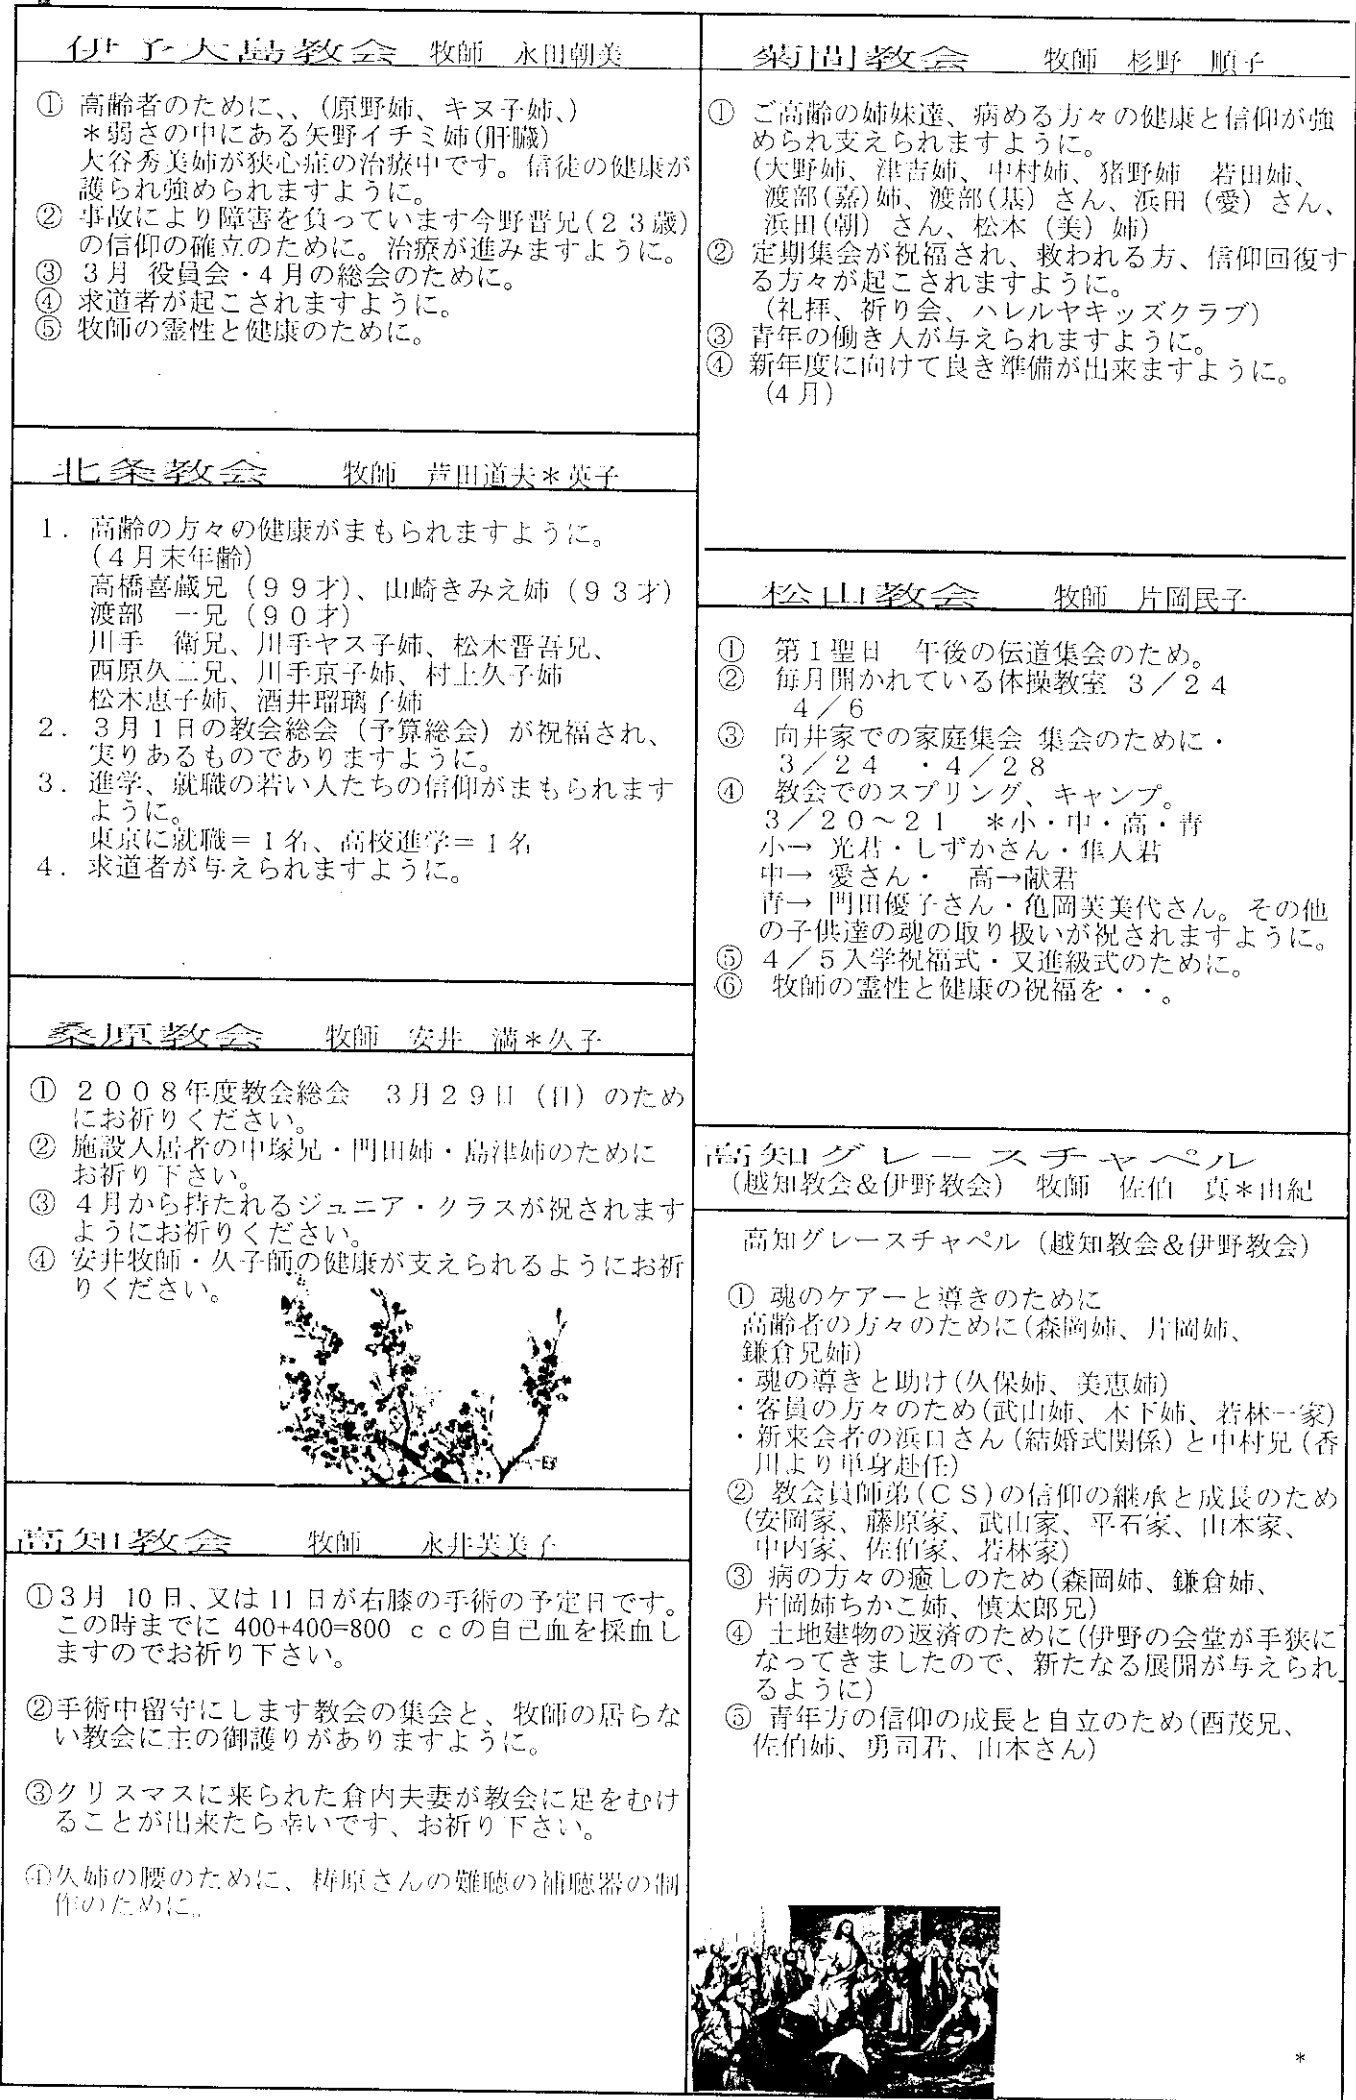 伊予大島教会 牧師 永田朝美
① 高齢者のために、、(原野姉、キヌ子姉、)
＊弱さの中にある矢野イチミ姉(肝臓)
大谷秀美姉が狭心症の治療中です。信徒の健康が
護られ強められますように。
② 事故により障害を負っています今野晋兄(２３歳)
の信仰の確立のために。治療が進みますように。
③ ３月 役員会・４月の総会のために。
④ 求道者が起こされますように。
⑤ 牧師の霊性と健康のために。
北条教会 牧師 芦田道夫＊英子
１．高齢の方々の健康がまもられますように。
(４月末年齢)
高橋喜蔵兄（９９才)、山崎きみえ姉（９３才)
渡部 一兄（９０才)
川手 衛兄、川手ヤス子姉、松木晋吾兄、
西原久二兄、川手京子姉、村上久子姉
松木恵子姉、酒井瑠璃子姉
２．３月１日の教会総会（予算総会）が祝福され、
実りあるものでありますように。
３．進学、就職の若い人たちの信仰がまもられます
ように。
東京に就職＝１名、高校進学＝１名
４．求道者が与えられますように。
桑原教会 牧師 安井 満＊久子
① ２００８年度教会総会 ３月２９日（日）のため
にお祈りください。
② 施設入居者の中塚兄・門田姉・島津姉のために
お祈り下さい。
③ ４月から持たれるジュニア・クラスが祝されます
ようにお祈りください。
④ 安井牧師・久子師の健康が支えられるようにお祈
りください。
高知教会 牧師 永井芙美子
①３月 10 日、又は 11 日が右膝の手術の予定日です。
この時までに 400+400=800 ｃｃの自己血を採血し
ますのでお祈り下さい。
②手術中留守にします教会の集会と、牧師の居らな
い教会に主の御護りがありますように。
③クリスマスに来られた倉内夫妻が教会に足をむけ
ることが出来たら幸いです、お祈り下さい。
④久姉の腰のために、梼原さんの難聴の補聴器の制
作のために。
菊間教会 牧師 杉野 順子
① ご高齢の姉妹達、病める方々の健康と信仰が強
められ支えられますように。
(大野姉、津吉姉、中村姉、猪野姉 若田姉、
渡部(嘉)姉、渡部(基）さん、浜田（愛）さん、
浜田(朝）さん、松本（美）姉)
② 定期集会が祝福され、救われる方、信仰回復す
る方々が起こされますように。
(礼拝、祈り会、ハレルヤキッズクラブ)
③ 青年の働き人が与えられますように。
④ 新年度に向けて良き準備が出来ますように。
(４月)
松山教会 牧師 片岡民子
① 第１聖日 午後の伝道集会のため。
② 毎月開かれている体操教室 ３／２４
４／６
③ 向井家での家庭集会 集会のために・
３／２４ ・４／２８
④ 教会でのスプリング、キャンプ。
３／２０～２１ ＊小・中・高・青
小→ 光君・しずかさん・隼人君
中→ 愛さん・ 高→献君
青→ 門田優子さん・亀岡芙美代さん。その他
の子供達の魂の取り扱いが祝されますように。
⑤ ４／５入学祝福式・又進級式のために。
⑥ 牧師の霊性と健康の祝福を・・。
高知グレースチャペル
(越知教会&伊野教会) 牧師 佐伯 真＊由紀
高知グレースチャペル（越知教会&伊野教会）
① 魂のケアーと導きのために
高齢者の方々のために(森岡姉、片岡姉、
鎌倉兄姉)
・魂の導きと助け(久保姉、美恵姉)
・客員の方々のため(武山姉、木下姉、若林一家)
・新来会者の浜口さん(結婚式関係)と中村兄(香
川より単身赴任)
② 教会員師弟(ＣＳ)の信仰の継承と成長のため
(安岡家、藤原家、武山家、平石家、山本家、
中内家、佐伯家、若林家)
③ 病の方々の癒しのため(森岡姉、鎌倉姉、
片岡姉ちかこ姉、慎太郎兄)
④ 土地建物の返済のために(伊野の会堂が手狭に
なってきましたので、新たなる展開が与えられ
るように)
⑤ 青年方の信仰の成長と自立のため(西茂兄、
佐伯姉、勇司君、山本さん)
＊